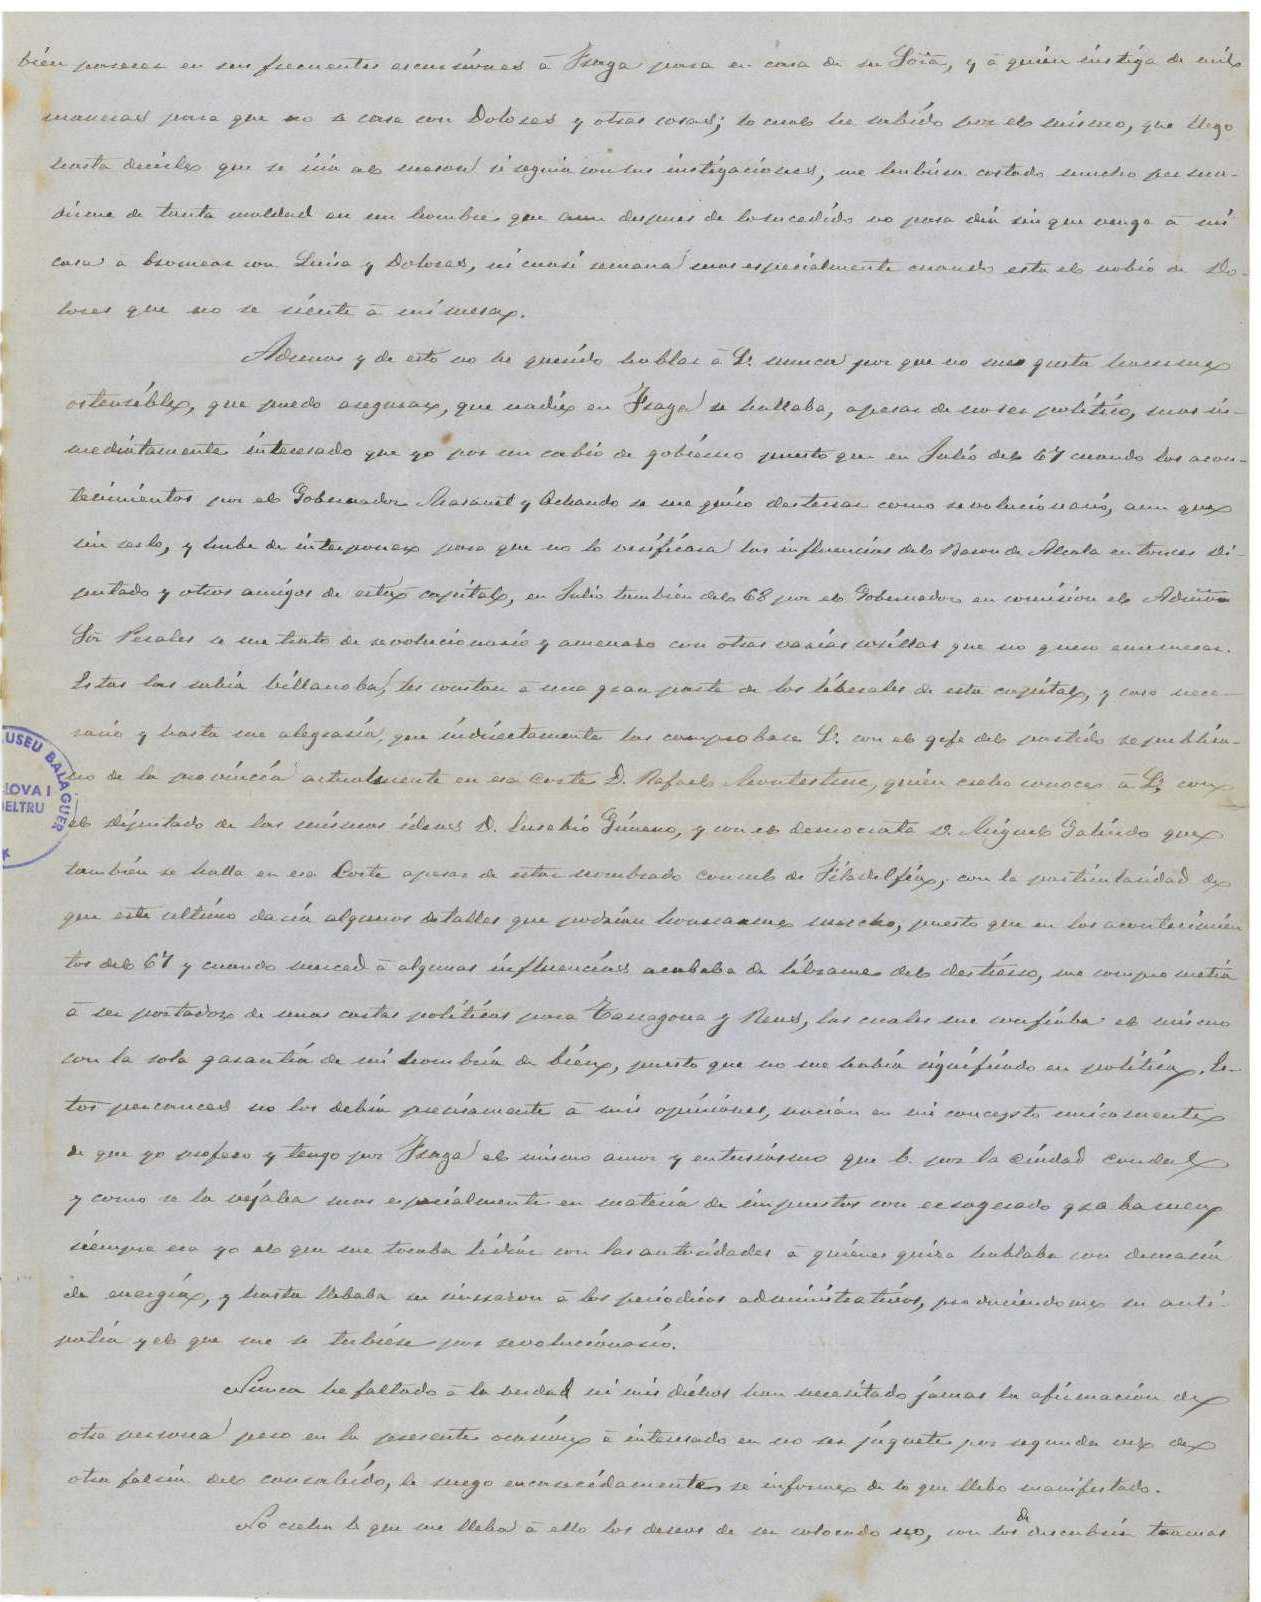 bién parece en sus frecuentes escursiones á Fraga para en casa de su Sōra, y á quién instiga de mil
maneras para que no se case con Dolores y otras cosas; lo cual he sabido por el mismo, que llego
hasta decirle que se iria al meson si seguia con sus instigaciones, me hubiera costado mucho persua-
dirme de tanta maldad en un hombre que aun despues de lo sucedido no pasa dia sin que venga á mi
casa a bromear con Luisa y Dolores, ni cuasi semana mas espesialmente cuando esta el nobio de Do-
lores que no se siente á mi mesa.
Ademas y de esto no he querido hablar á V. nunca por que no me gusta hacerme
ostensible, que puedo asegurar, que nadie en Fraga se hallaba, apesar de no ser político, mas in-
mediatamente interesado que yo por un cabio de gobierno puesto que en Julio del 67 cuando los acon-
tecimientos por el Gobernador y Ochando se me quiso desterrar como revolucionario, aun que
sin serlo, y hube de interponer para que no lo verificara las influencias del Baron de Alcala entonces Di-
putado y otros amigos de esta capital, en Julio también del 68 por el Gobernador en comision el Admōn
Sōr Perales se me trato de revolucionario y amenazo con otras varias cosillas que no quero enumerar.
Estas las sabia Villanoba, les constan á una gran parte de los liberales de esta capital, y caso nece-
sario y hasta me alegraria, que indirectamente las comprobase V. con el gefe del partido republica-
no de la provincia actualmente en esa Corte D. Rafael Montestruc, quién creho conoce á V, con
el diputado de las mismas ideas D. Eusebio Gimeno, y con el democrata D. Miguel Galindo que
también se halla en esa Corte apesar de estar nombrado consul de Filadelfia; con la particularidad de
que este ultimo daria algunos detalles que podrian honrarme mucho, puesto que en los acontecimién
tos del 67 y cuando merced á algunas influencias acababa de librarme del destierro, me comprometia
á ser portador de unas cartas políticas para Tarragona y Reus, las cuales me confiaba el mismo
con la sola garantia de mi hombria de bién, puesto que no me habia significado en política. Es-
tos percances no los debia precisamente á mis opiniones, nacian en mi concepto unicamente
de que yo profeso y tengo por Fraga el mismo amor y entusiasmo que V. por la ciudad condal
y como se la vejaba mas especialmente en materia de impuestos con ecsagerado grabamen
siempre era yo el que me tocaba lidiar con las autoridades á quienes quiza hablaba con demasia
de energia, y hasta llebaba su sinrazon á los periodicos administrativos, produciendome su anti-
patia y el que me se tubiése por revolucionario.
Nunca he faltado á la verdad ni mis dichos han necesitado jamas la afirmación de
otra persona pero en la presente ocasión é interesado en no ser juguete por segunda vez de
otra falsia del consabido, le ruego encarecidamente se informe de lo que llebo manifestado.
No creha V que me lleba á ello los deseos de ser colocado no, son los de descubrir tramas
USEU BALAGUER
LOVA I
ELTRU